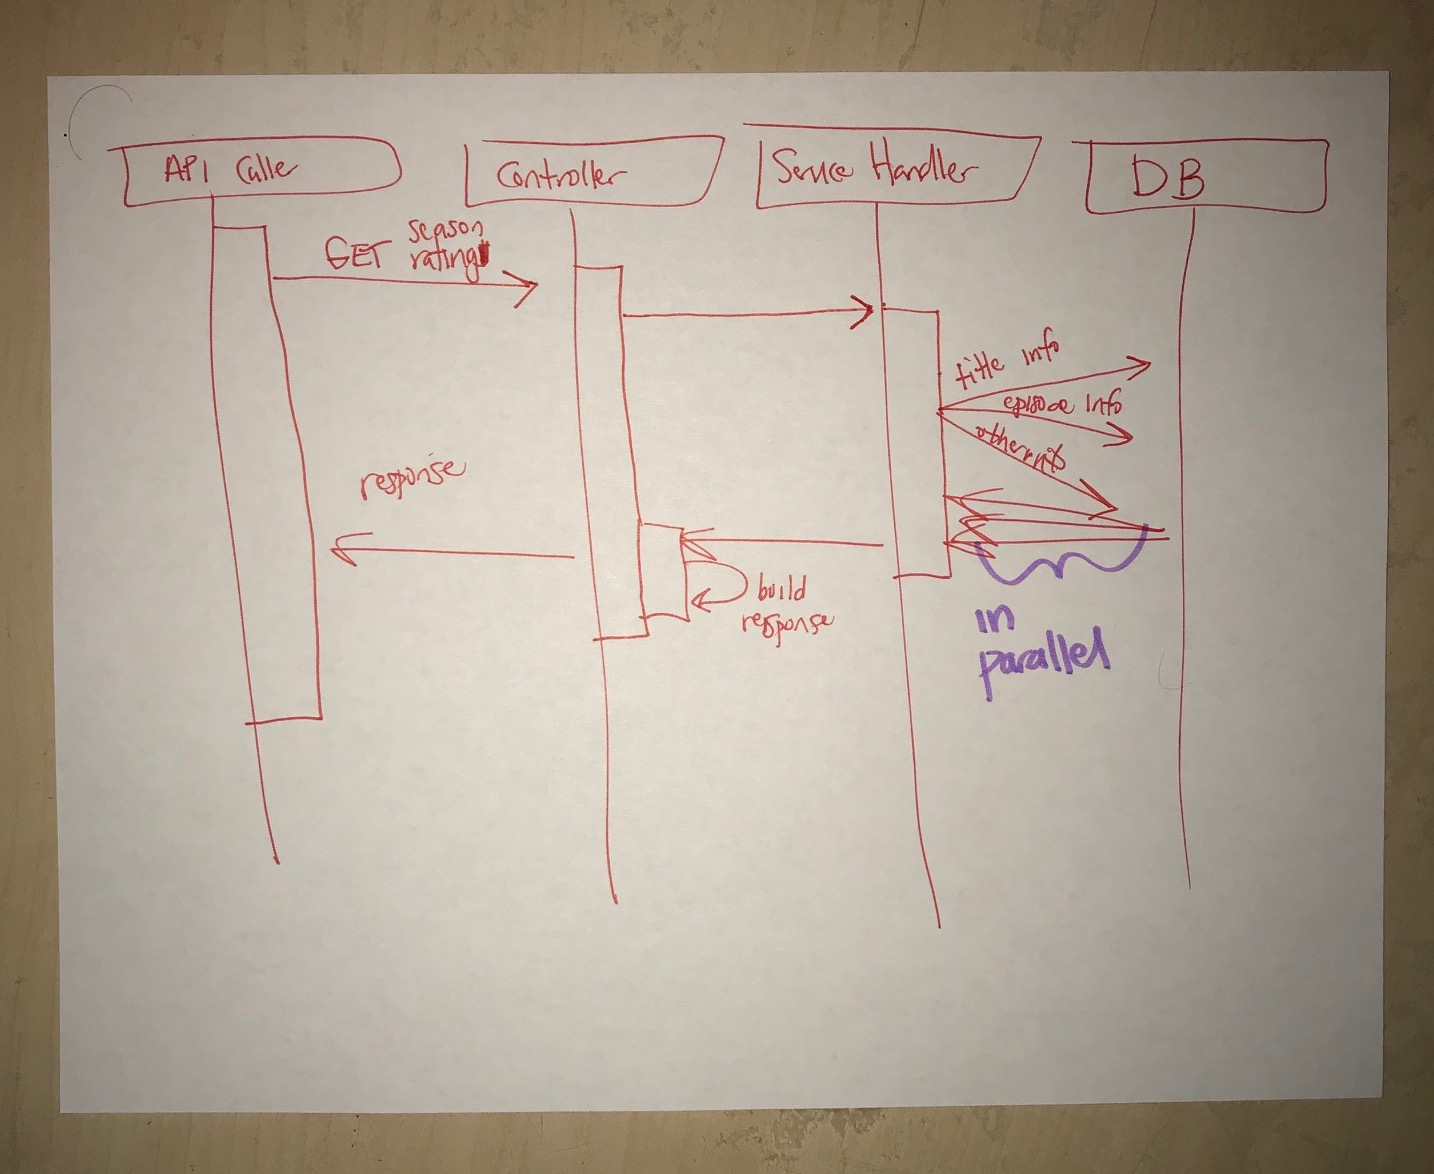 API Caller
Controller
Service Handler
DB
GET season
rating
title info
episode info
other info
response
build
response
in
parallel